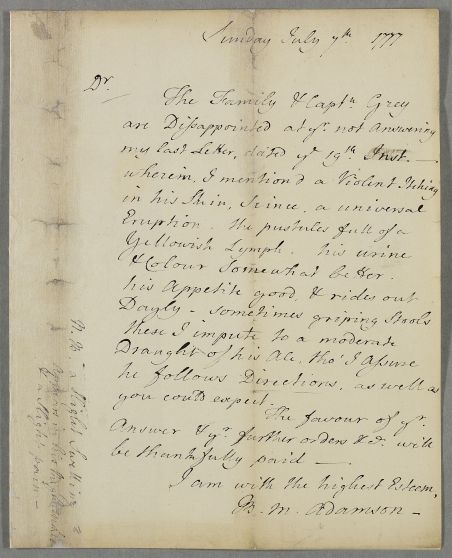 Sunday July 7th. 1777
Dr.
The Family & Captn. Grey
are Disappointed at yr. not Answering
my last Letter, dated ye 19th Inst. —
wherein, I mention'd a Violent Itching
in his Skin, Scince, a universal
Eruption. the pustules full of a
Yellowish Lymph. his urine
& Colour Somewhat better.
his Appetite good, & rides out
Dayly — Sometimes griping Stools
these I impute to a moderate
Draught of his Ale, tho' I Assure
he follows Directions, as well as
you could expect.
The favour of yr.
Answer & yr. further orders &c. will
be thankfully paid —
I am with the highest Esteem,
M. Adamson —
a Slight Swelling &
& a Slight pain —